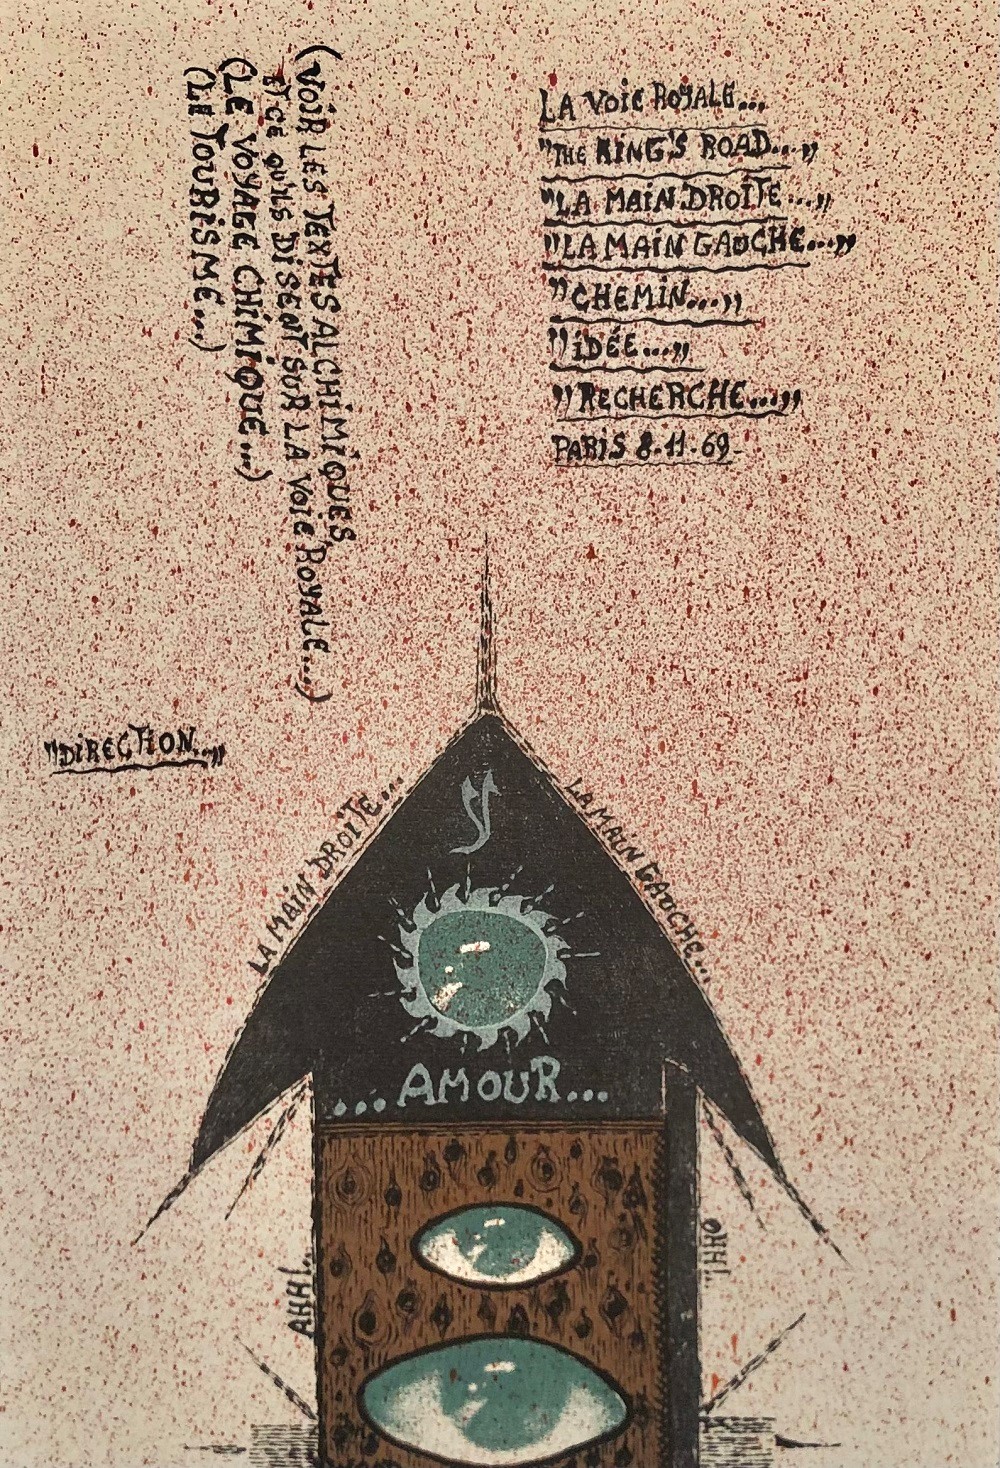 LA VOIE ROYALE...
"THE KING'S ROAD..."
"LA MAIN DROITE..."
"LA MAIN GAUCHE..."
"CHEMIN..."
"IDÉE..."
"RECHERCHE..."
PARIS 8.11.69-
(VOIR LES TEXTES ALCHIMIQUES
ET CE QU'ILS DISENT SUR LA VOIE ROYALE...)
(LE VOYAGE CHIMIQUE...)
(LE TOURISME...)
"DIRECTION..."
LA MAIN DROITE...
LA MAIN GAUCHE...
Y
...AMOUR...
AHH!..
OHH!